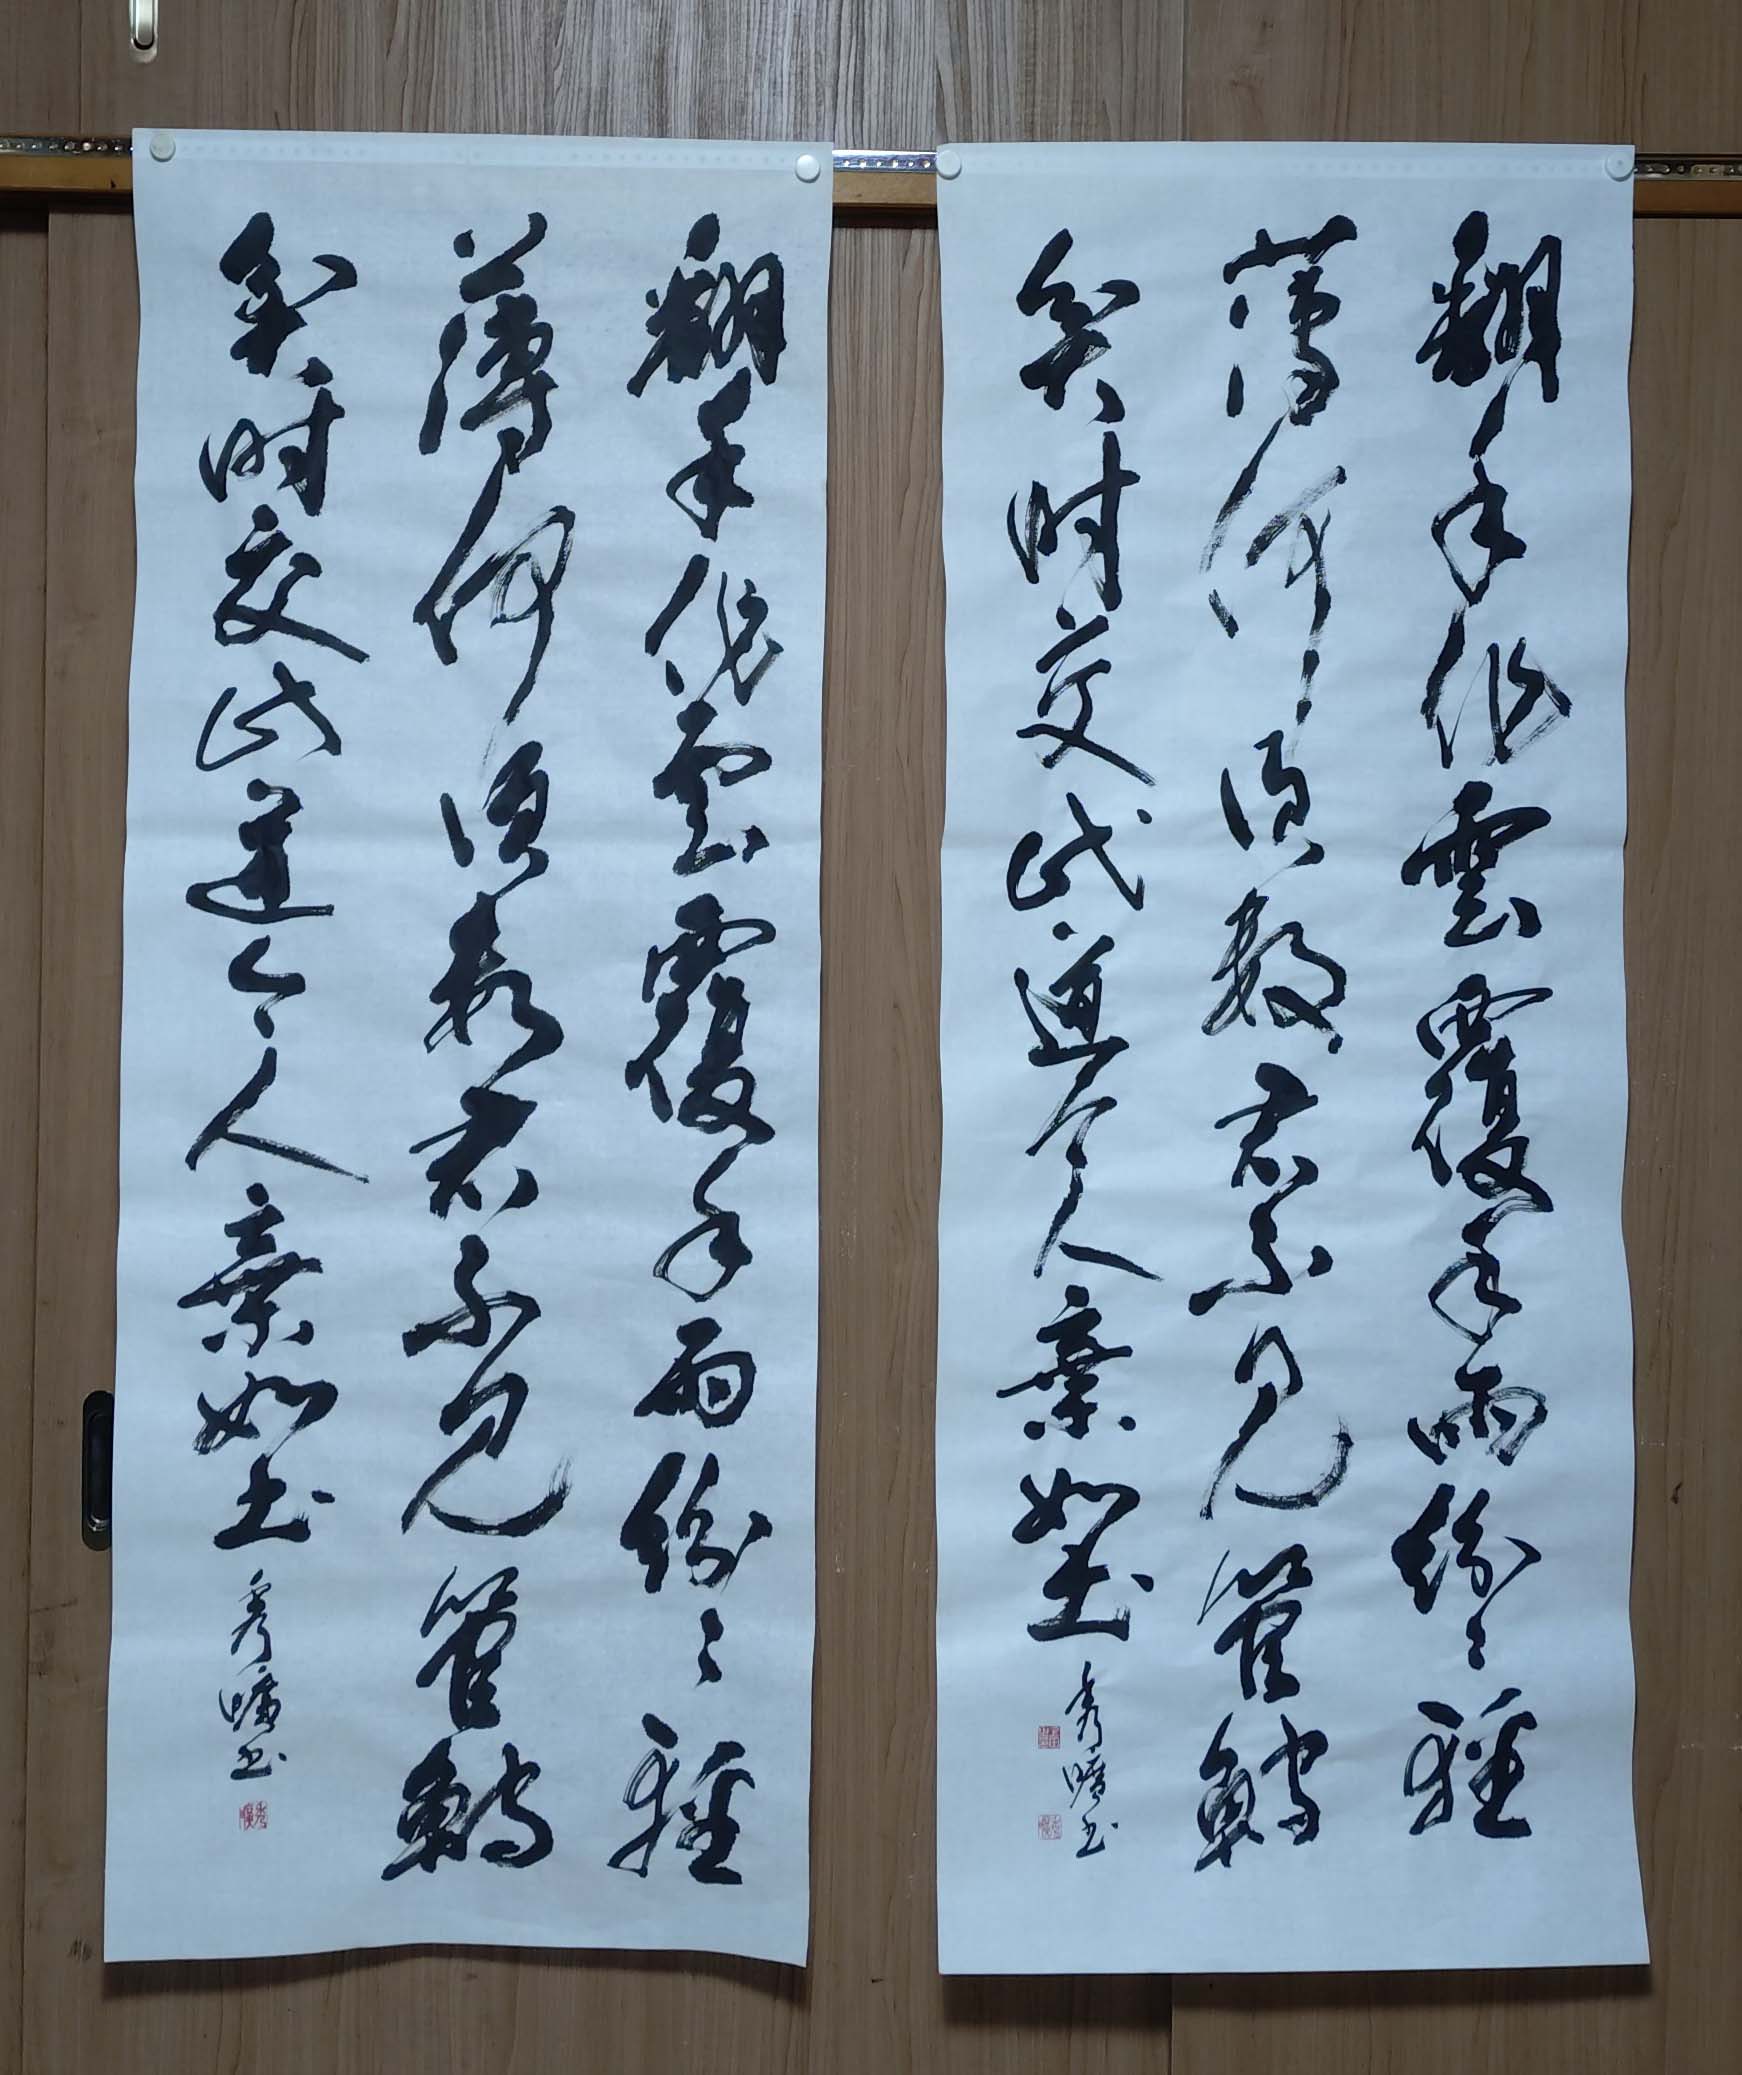 翻手作雲覆手雨紛々輕
薄何須數君不見管鮑
貧時交此道今人棄如土
秀曠書
翻手作雲覆手雨紛々輕
薄何須數君不見管鮑
貧時交此道今人棄如土
秀曠書